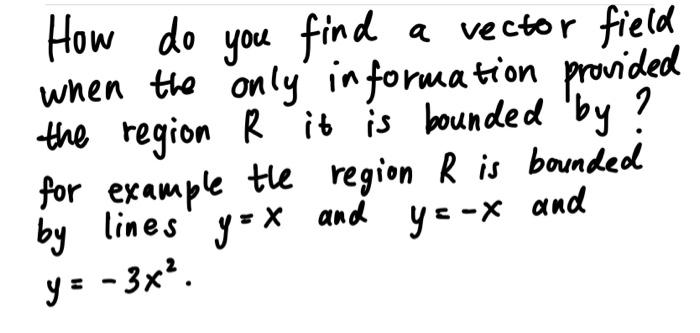 How do you find a vector field
when the only information provided
the region R it is bounded by?
for example the region R is bounded
by lines y = x and y = -x and
y = -3x².